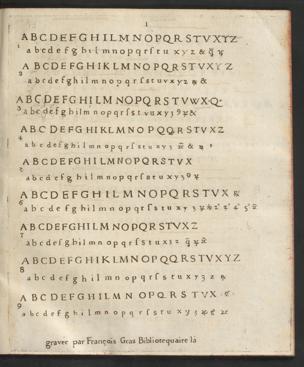 1
A B C D E F G H I L M N O P Q R S T V X Y Z
1 a b c d e f g h i l m n o p q r ſ s t u x y z &
A B C D E F G H I K L M N O P Q R S T V X Y Z
2 a b c d e f g h i l m n o p q r ſ s t u v x y z &
A B C D E F G H I L M N O P Q R S T V W X Q
3 a b c d e f g h i l m n o p q r ſ s t v u x y 3 9 &
A B C D E F G H I K L M N O P Q Q R S T V X Z
4 a b c d e f g h i l m n o p q r ſ s t u x y 3 &
A B C D E F G H I L M N O P Q R S T V X
2 a b c d e f g h i l m n o p q r ſ s t u x y 3
A B C D E F G H I L M N O P Q R S T V X &
6 a b c d e f g h i l m n o p q r ſ s t u x y 3
A B C D E F G H I L M N O P Q R S T V X Z
7 a b c d e f g h i l m n o p q r ſ s t u x 3 z
A B C D E F G H I K L M N O P Q R S T V X Y Z
8 a b c d e f g h i l m n o p q r ſ s t u x y 3 z
A B C D E F G H I L M N O P Q R S T V X
9 a b c d e f g h i l m n o p q r ſ s t u x y 3
graver par François Gras Bibliotequaire la